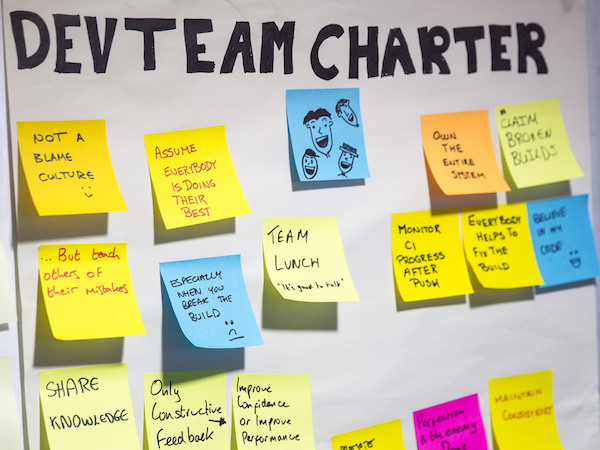 DEV TEAM CHARTER
NOT A
BLAME
CULTURE
ASSUME
EVERYBODY
IS DOING
THEIR
BEST
OWN
THE
ENTIRE
SYSTEM
CLAIM
BROKEN
BUILDS
... But teach
others of
their mistakes
ESPECIALLY
WHEN YOU
BREAK THE
BUILD
TEAM
LUNCH
"It's good to talk"
MONITOR
CI
PROGRESS
AFTER
PUSH
EVERYBODY
HELPS TO
FIX THE
BUILD
BELIEVE
IN MY
CODE
SHARE
KNOWLEDGE
Only
Constructive
Feedback
Improve
Confidence
or Improve
Performance
Perfection
is the enemy
MAINTAIN
CONSISTENCY